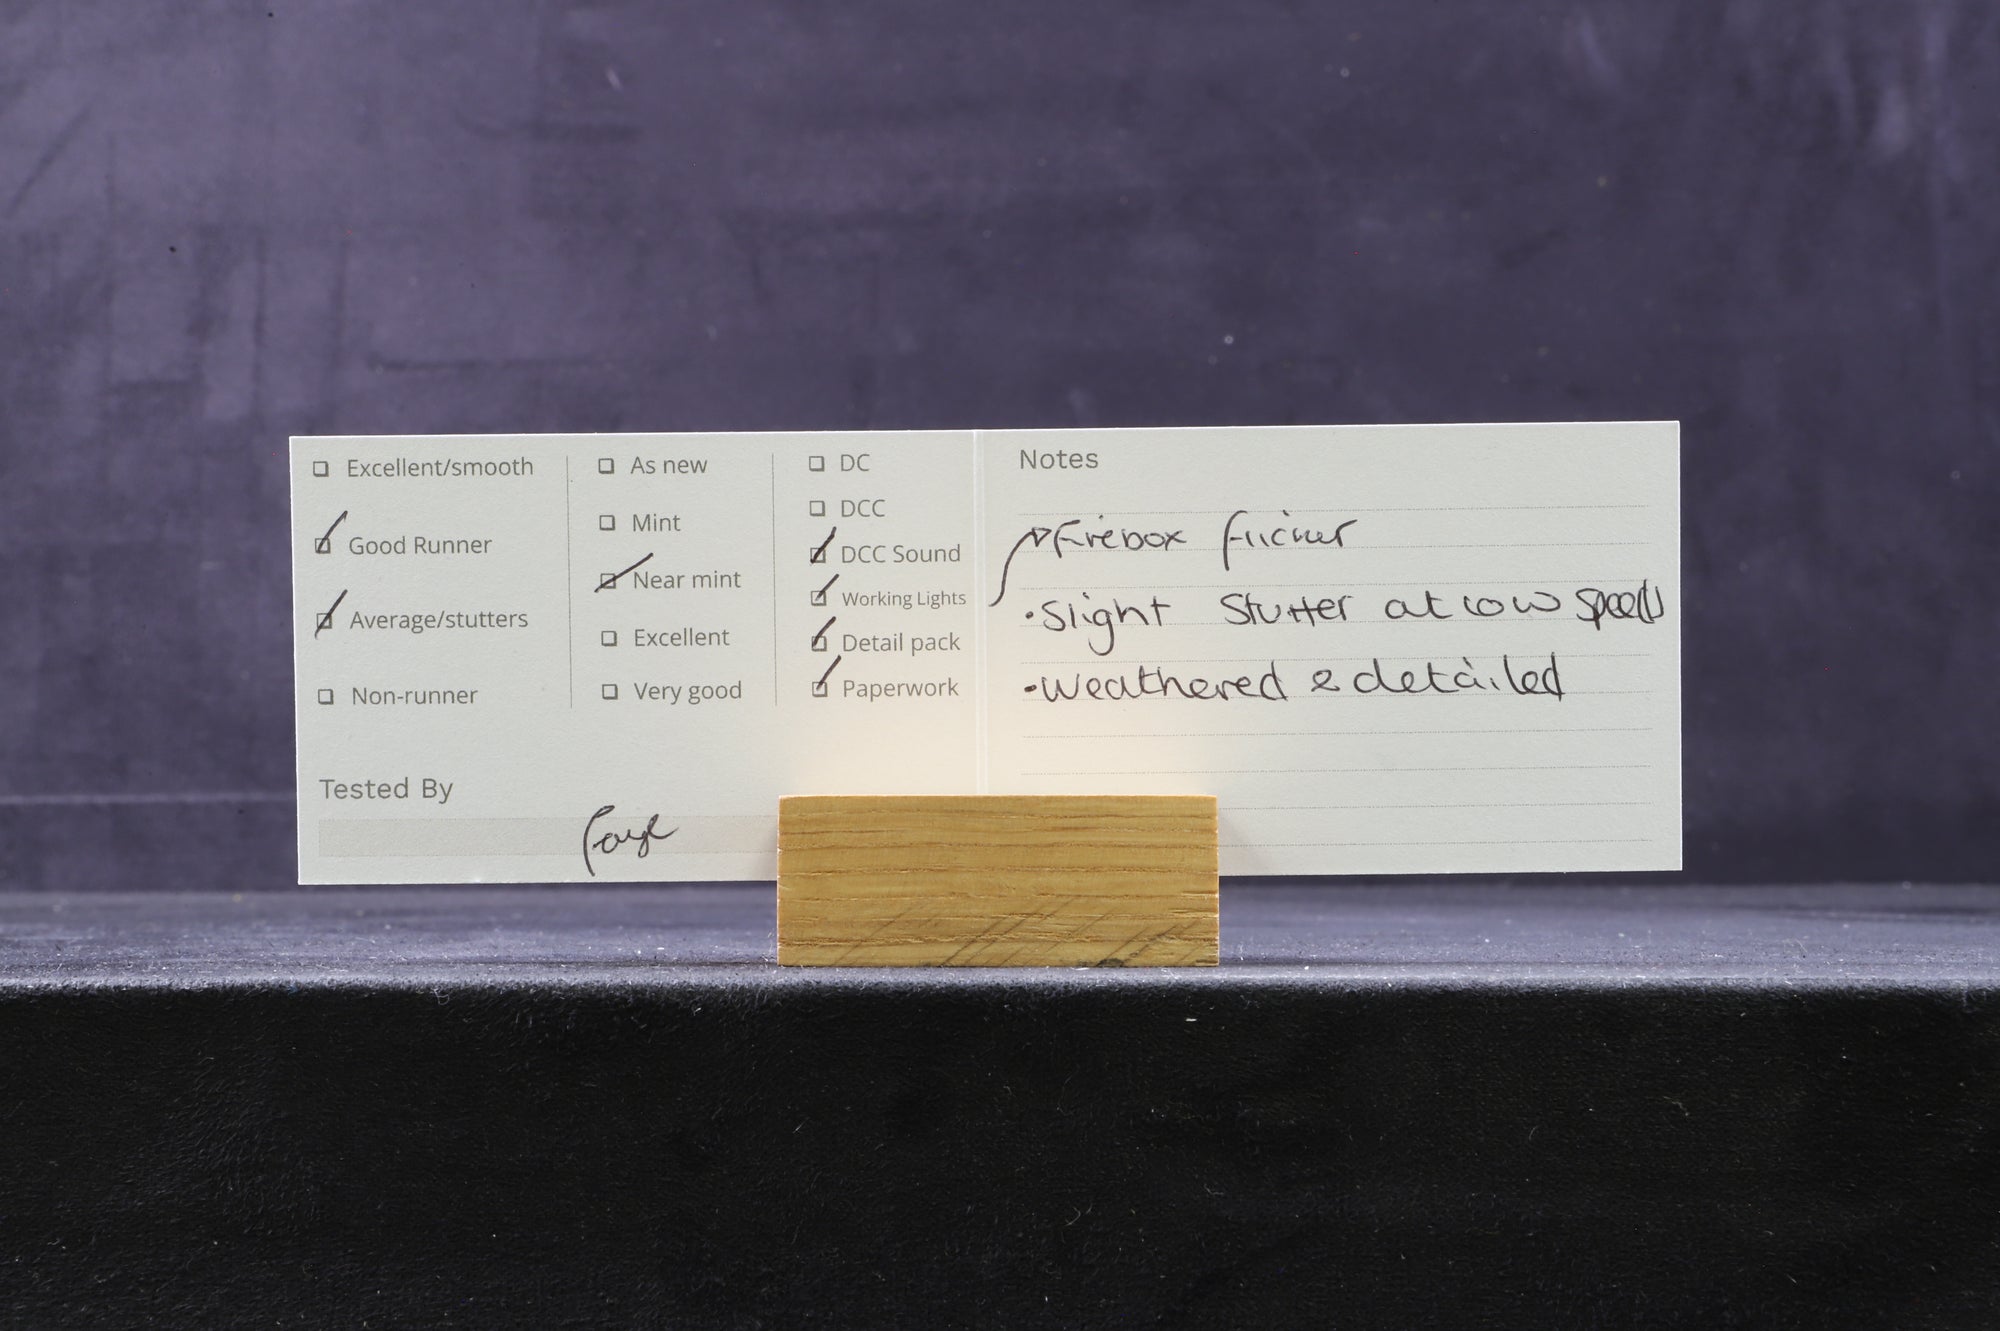 Excellent/smooth
Good Runner
Average/stutters
Non-runner
As new
Mint
Near mint
Excellent
Very good
DC
DCC
DCC Sound
Working Lights
Detail pack
Paperwork
Tested By
Faye
Notes
Firebox flicker
• Slight stutter at low speeds
• Weathered & detailed